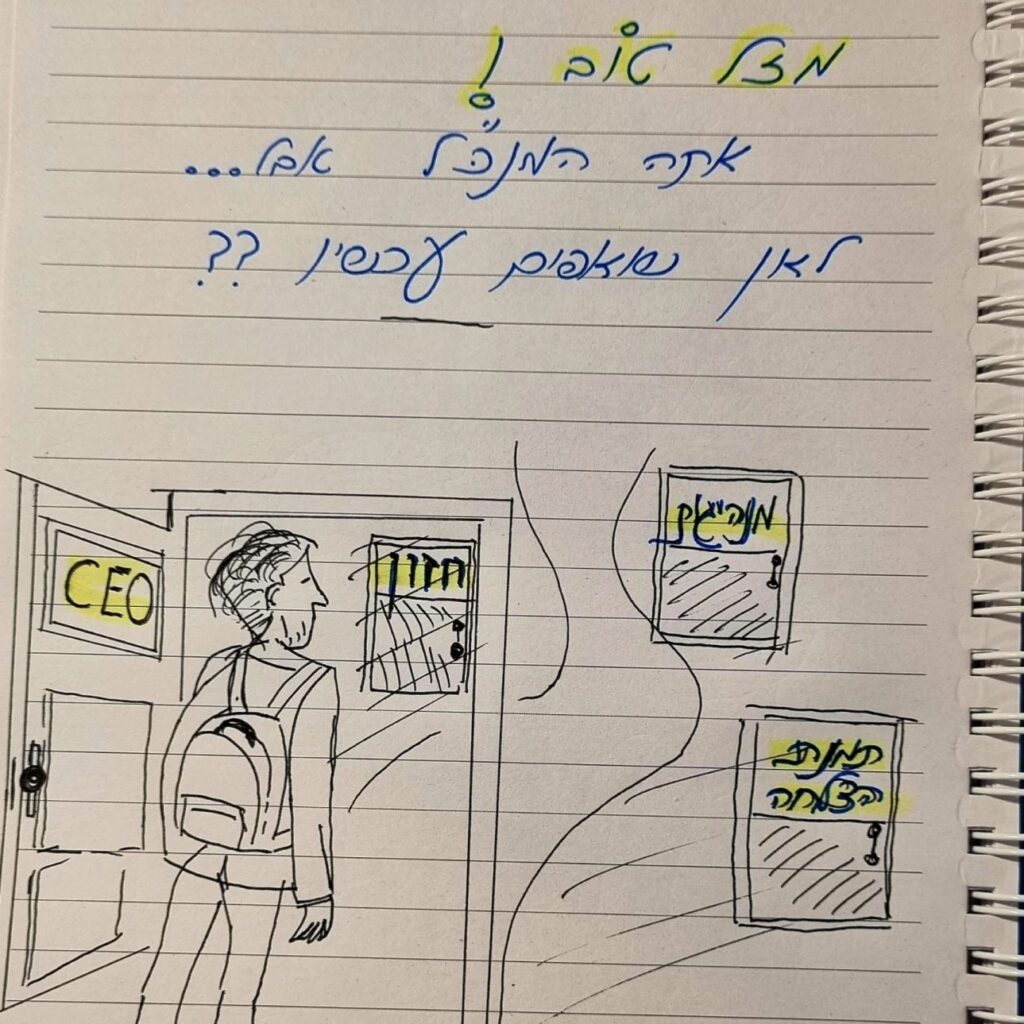 מזל טוב !
אתה המנכ"ל אבל...
לאן שואפים עכשיו ??
CEO
חזון
מנהיגות
תמונת
הצלחה